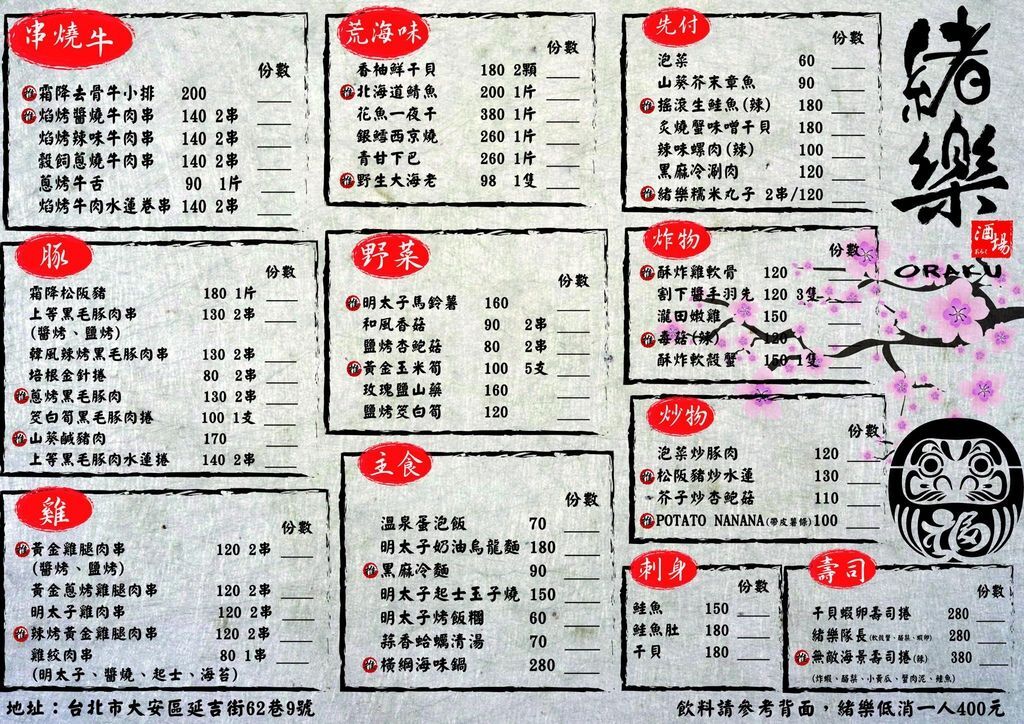 串燒牛
份數
推 霜降去骨牛小排 200
推 焰烤醬燒牛肉串 140 2串
焰烤辣味牛肉串 140 2串
穀飼蔥燒牛肉串 140 2串
蔥烤牛舌 90 1片
焰烤牛肉水蓮卷串 140 2串
豚
份數
霜降松阪豬 180 1片
上等黑毛豚肉串 130 2串
(醬烤、鹽烤)
韓風辣烤黑毛豚肉串 130 2串
培根金針捲 80 2串
推 蔥烤黑毛豚肉 130 2串
筊白筍黑毛豚肉捲 100 1支
推 山葵鹹豬肉 170
上等黑毛豚肉水蓮捲 140 2串
雞
份數
推 黃金雞腿肉串 120 2串
(醬烤、鹽烤)
黃金蔥烤雞腿肉串 120 2串
明太子雞肉串 120 2串
推 辣烤黃金雞腿肉串 120 2串
雞紋肉串 80 1串
(明太子、醬燒、起士、海苔)
荒海味
份數
香柚鮮干貝 180 2顆
推 北海道鯖魚 200 1片
花魚一夜干 380 1片
銀鱈西京燒 260 1片
青甘下巴 260 1片
推 野生大海老 98 1隻
野菜
份數
推 明太子馬鈴薯 160
和風香菇 90 2串
鹽烤杏鮑菇 80 2串
推 黃金玉米筍 100 5支
玫瑰鹽山藥 160
鹽烤筊白筍 120
主食
份數
溫泉蛋泡飯 70
明太子奶油烏龍麵 180
推 黑麻冷麵 90
明太子起士玉子燒 150
明太子烤飯糰 60
蒜香蛤蠣清湯 70
推 橫綱海味鍋 280
先付
份數
泡菜 60
山葵芥末章魚 90
推 搖滾生鮭魚(辣) 180
炙燒蟹味噌干貝 180
辣味螺肉(辣) 100
黑麻冷涮肉 120
推 緒樂糯米丸子 2串/120
炸物
份數
推 酥炸雞軟骨 120
割下醬手羽先 120 3隻
瀧田嫩雞 150
推 毒菇(辣) 120
酥炸軟殼蟹 150 1隻
炒物
份數
泡菜炒豚肉 120
推 松阪豬炒水蓮 130
芥子炒杏鮑菇 110
推 POTATO NANANA(帶皮薯條) 100
刺身
份數
鮭魚 150
鮭魚肚 180
干貝 180
壽司
份數
干貝蝦卵壽司捲 280
緒樂隊長(軟殼蟹、酪梨、蝦卵) 280
推 無敵海景壽司捲(辣) 380
(炸蝦、酪梨、小黃瓜、蟹肉泥、鮭魚)
緒樂
酒場
ORAKU
福
地址：台北市大安區延吉街62巷9號
飲料請參考背面，緒樂低消一人400元